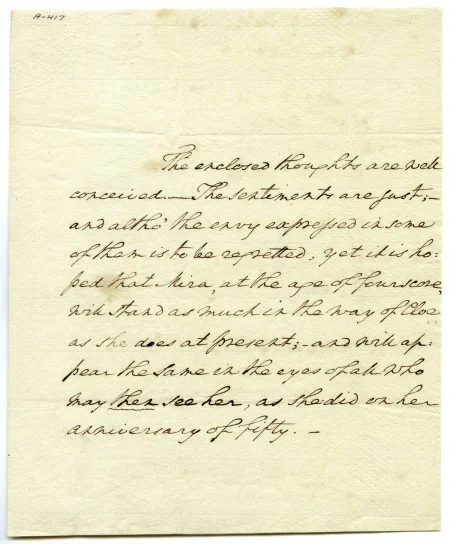 A-417
The enclosed thoughts are well
conceived.—The sentiments are just;—
and altho' the envy expressed in some
of them is to be regretted, yet it is ho:
ped that Mira, at the age of fourscore,
will stand as much in the way of Cloe
as she does at present;—and will ap:
pear the same in the eyes of all who
may then see her, as she did on her
anniversary of fifty.—